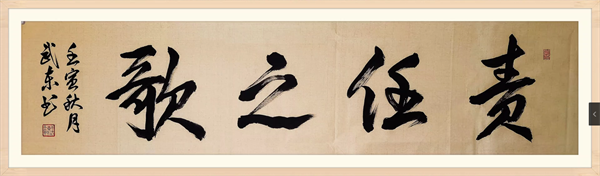 责任之歌
壬寅秋月
武东书